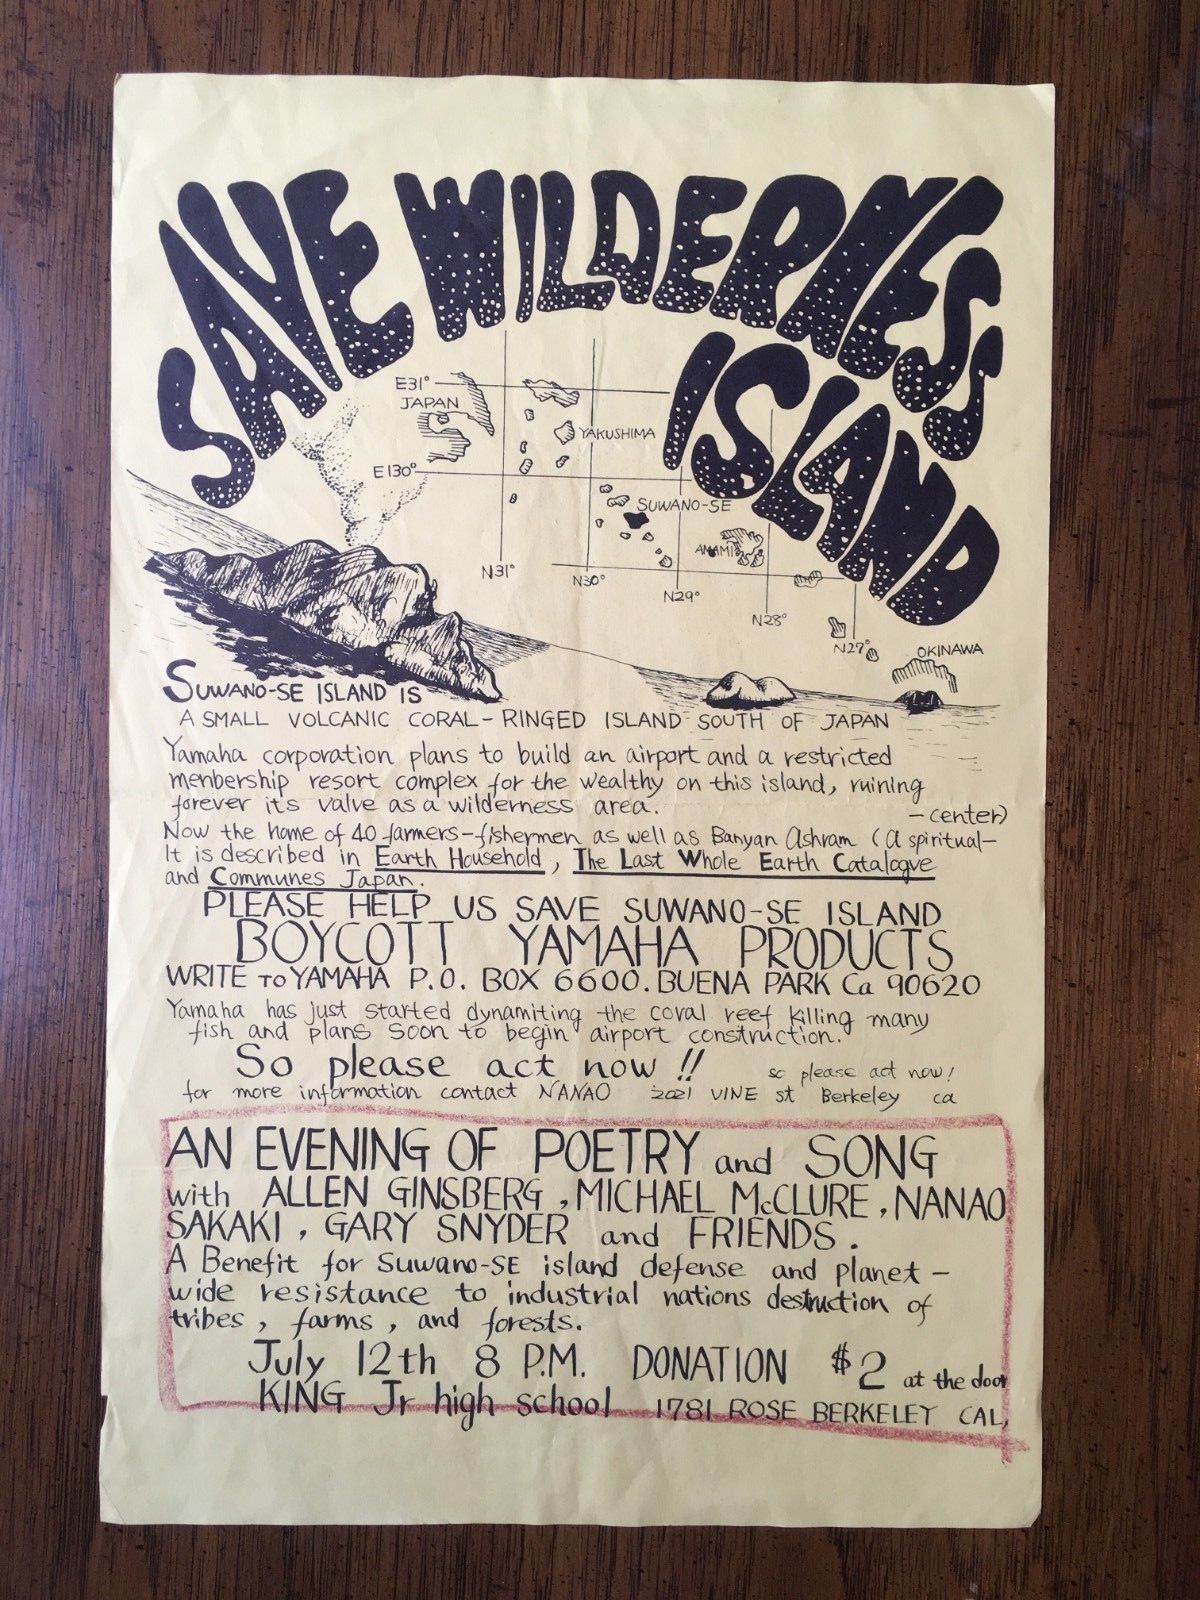 SAVE WILDERNESS
ISLAND
E31°
JAPAN
YAKUSHIMA
E130°
SUWANO-SE
AMAMI
N31°
N30°
N29°
N28°
N27°
OKINAWA
SUWANO-SE ISLAND IS
A SMALL VOLCANIC CORAL-RINGED ISLAND SOUTH OF JAPAN
Yamaha corporation plans to build an airport and a restricted
menbership resort complex for the wealthy on this island, ruining
forever its valve as a wilderness area.
-center)
Now the home of 40 farmers-fishermen as well as Banyan Ashram (a spiritual-
It is described in Earth Household, The Last Whole Earth Catalogue
and Communes Japan.
PLEASE HELP US SAVE SUWANO-SE ISLAND
BOYCOTT YAMAHA PRODUCTS
WRITE TO YAMAHA P.O. BOX 6600. BUENA PARK Ca 90620
Yamaha has just started dynamiting the coral reef killing many
fish and plans soon to begin airport construction.
So please act now !! so please act now!
for more information contact NANAO 2021 VINE st Berkeley ca
AN EVENING OF POETRY and SONG
with ALLEN GINSBERG, MICHAEL McCLURE, NANAO
SAKAKI, GARY SNYDER and FRIENDS.
A Benefit for Suwano-SE island defense and planet-
wide resistance to industrial nations destruction of
tribes, farms, and forests.
July 12th 8 P.M. DONATION $2 at the door
KING Jr high school 1781 ROSE BERKELEY CAL,